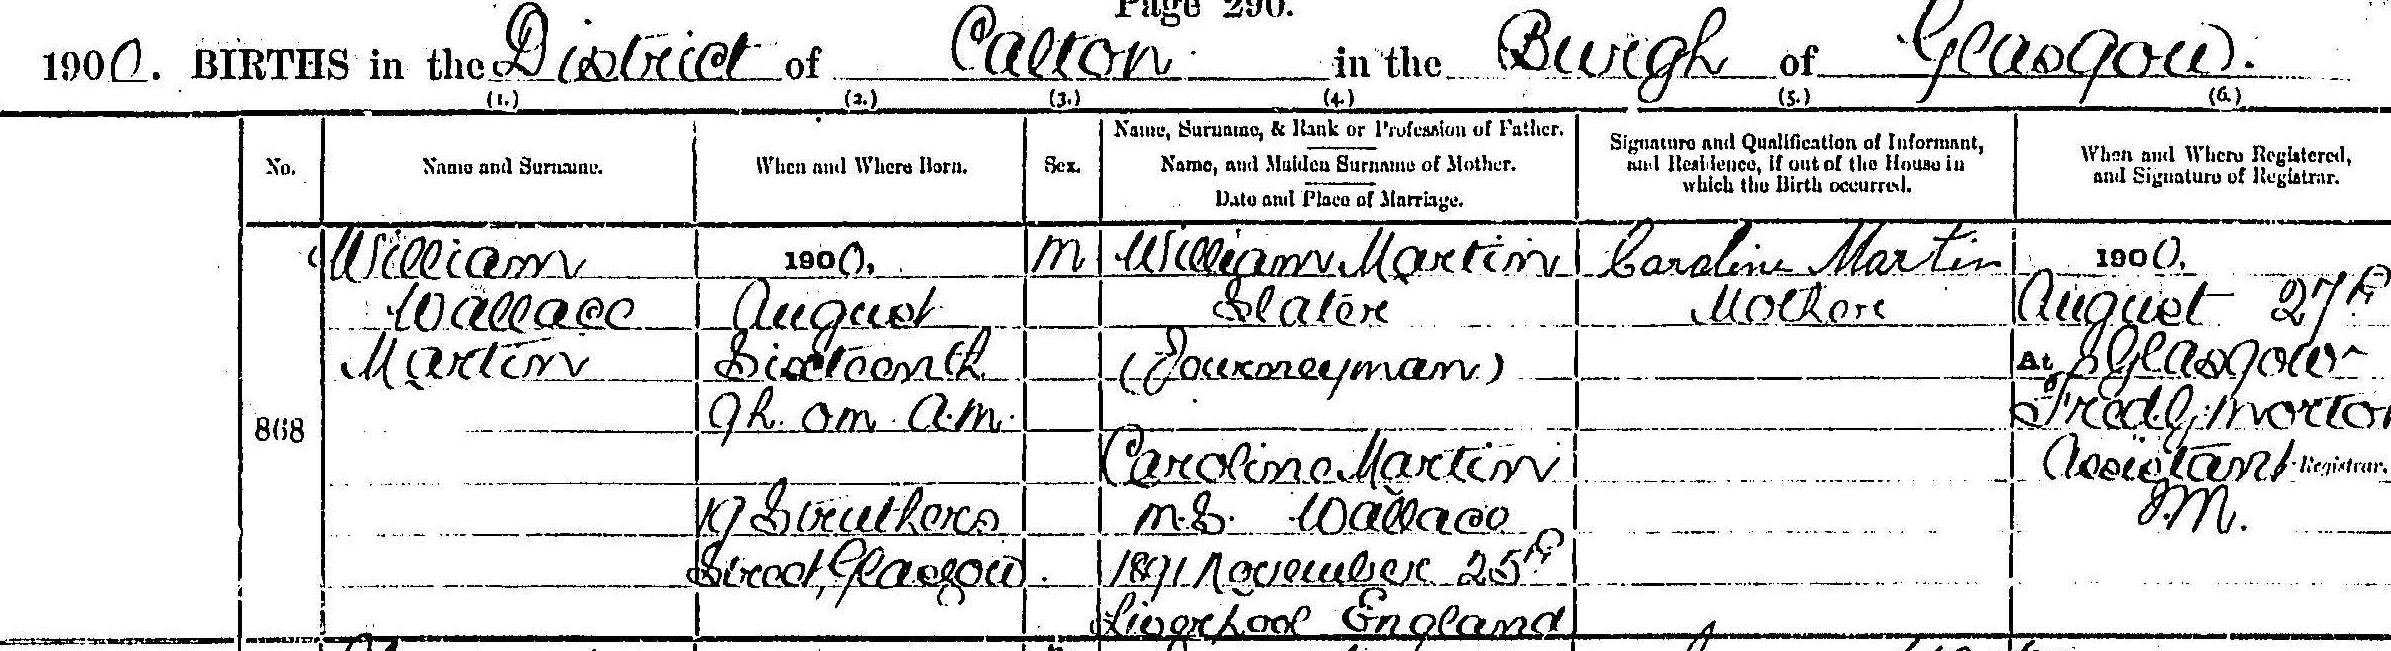 Page 290.
1900. BIRTHS in the District of Calton in the Burgh of Glasgow.
(1.) (2.) (3.) (4.) (5.) (6.)
No.
Name and Surname.
When and Where Born.
Sex.
Name, Surname, & Rank or Profession of Father.
Name, and Maiden Surname of Mother.
Date and Place of Marriage.
Signature and Qualification of Informant,
and Residence, if out of the House in
which the Birth occurred.
When and Where Registered,
and Signature of Registrar.
868
William
Wallace
Martin
1900,
August
Sixteenth
9h. 0m A.M.
19 Struthers
Street, Glasgow
M
William Martin
Slater
(Journeyman)
Caroline Martin
M.S. Wallace
1891 November 25th
Liverpool England
Caroline Martin
Mother
1900,
August 27th
At Glasgow
Fredk. Morton
Assistant Registrar.
J.M.